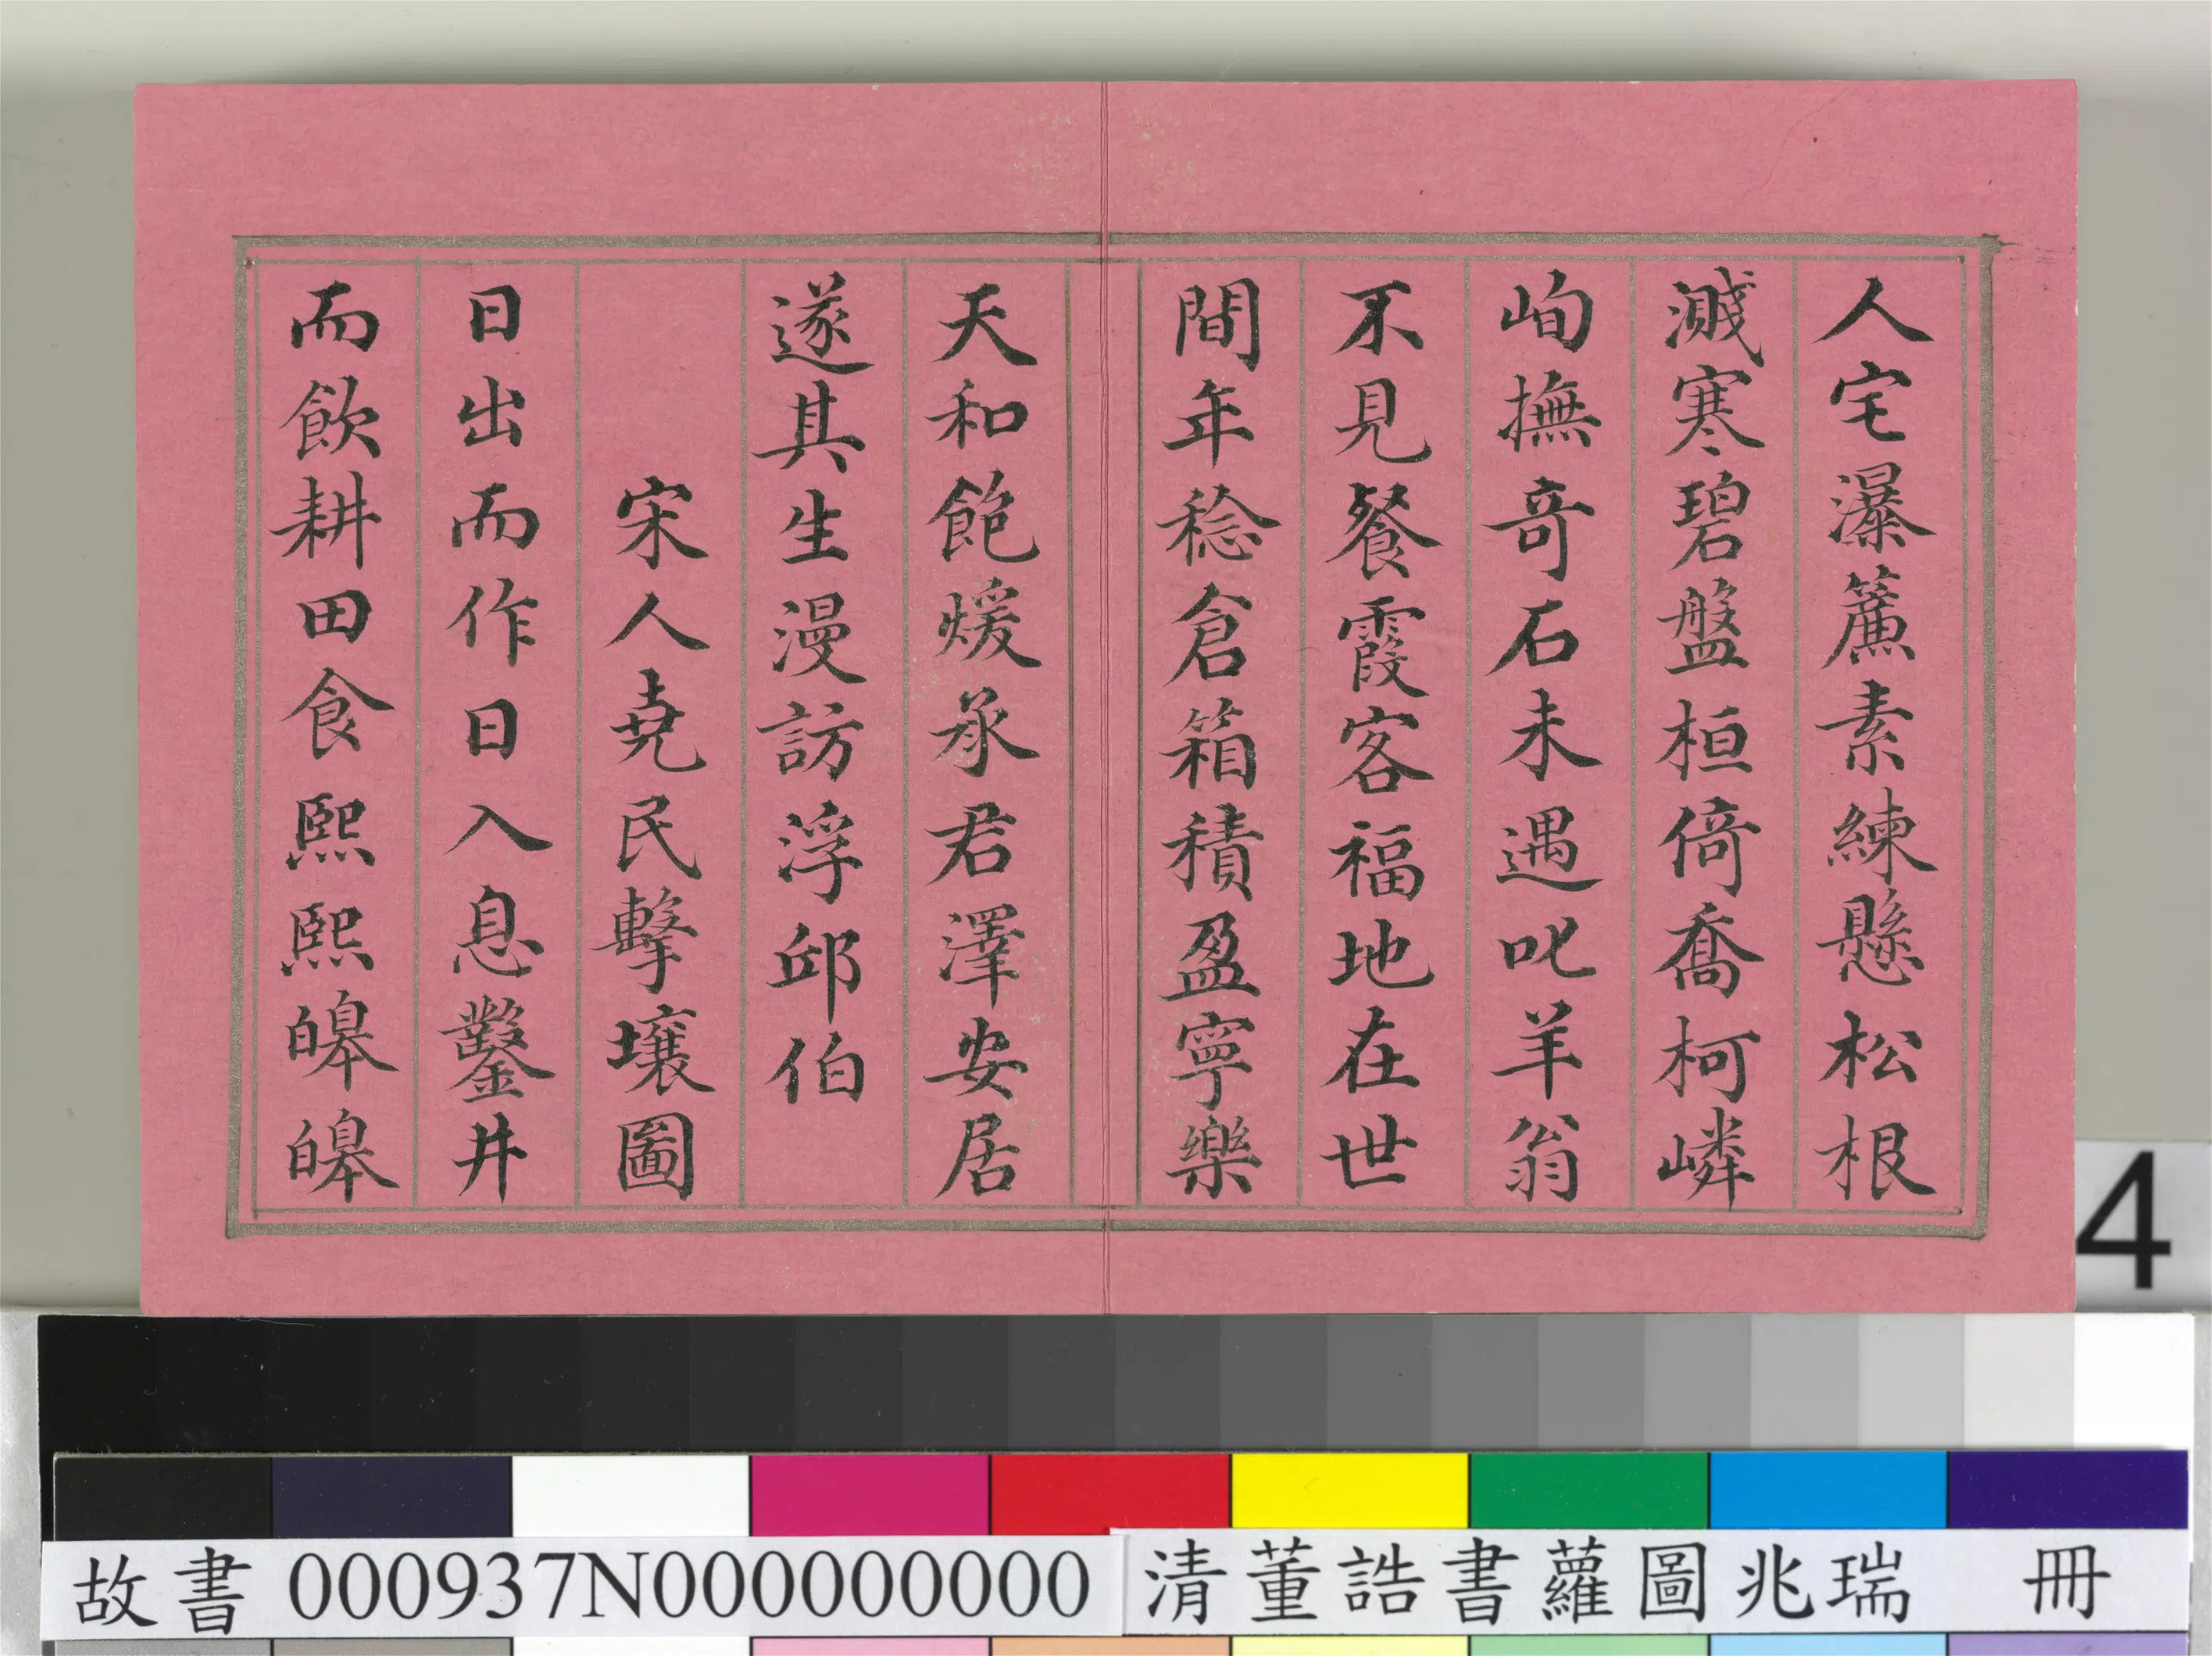 人宅瀑簾素練懸松根
濺寒碧盤桓倚喬柯嶙
峋撫奇石未遇叱羊翁
不見餐霞客福地在世
間年稔倉箱積盈寧樂
天和飽煖承君澤安居
遂其生漫訪浮邱伯
宋人堯民擊壤圖
日出而作日入息鑿井
而飲耕田食熙熙皞皞
4
故書 000937N000000000 清董誥書蘿圖兆瑞 冊